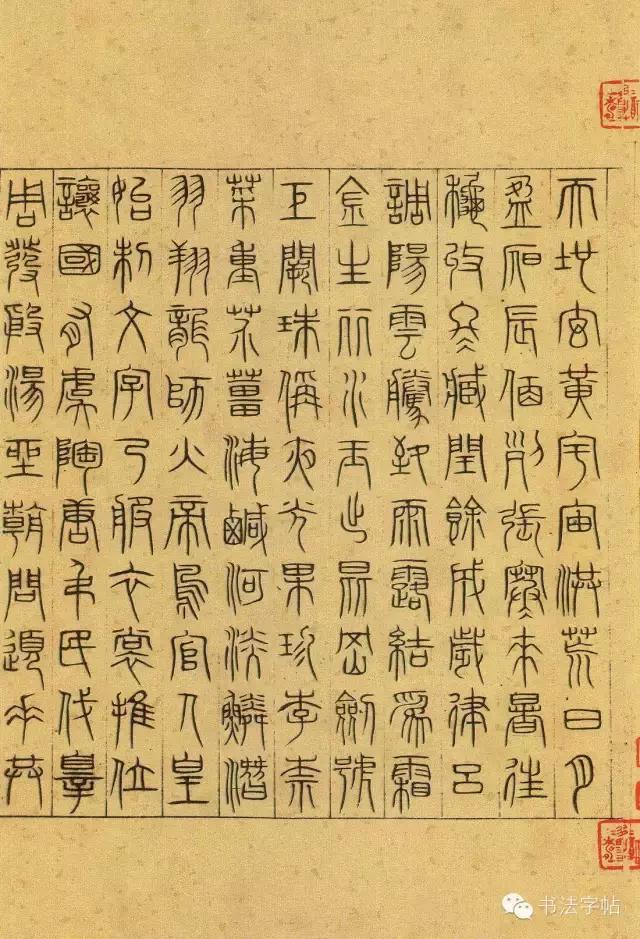 天地玄黃宇宙洪荒日月
盈昃辰宿列張寒來暑往
秋收冬藏閏餘成歲律呂
調陽雲騰致雨露結為霜
金生麗水玉出崑岡劍號
巨闕珠稱夜光果珍李柰
菜重芥薑海鹹河淡鱗潛
羽翔龍師火帝鳥官人皇
始制文字乃服衣裳推位
讓國有虞陶唐弔民伐辠
周發殷湯坐朝問道垂拱
书法字帖